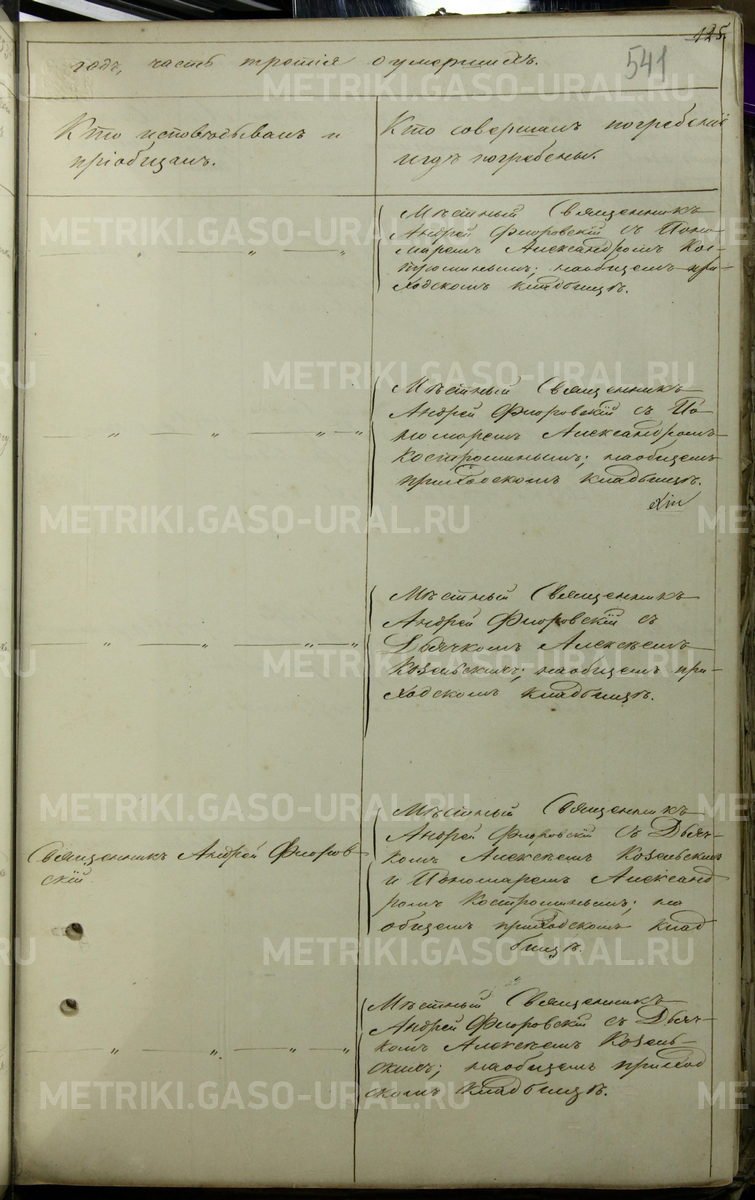 125.
541
годъ, часть третія о умершихъ.
Кто исповѣдывалъ и
пріобщалъ.
Кто совершалъ погребеніе
и гдѣ погребены.
Мѣстный Священникъ
Андрей Флоровскій съ Поно-
маремъ Александромъ Кос-
троминымъ; на общемъ при-
ходскомъ кладбищѣ.
— „ — „ — „
Мѣстный Священникъ
Андрей Флоровскій съ По-
номаремъ Александромъ
Костроминымъ; на общемъ
приходскомъ кладбищѣ.
— „ — „ — „ —
Мѣстный Священникъ
Андрей Флоровскій съ
Дьячкомъ Алексѣемъ
Козельскимъ; на общемъ при-
ходскомъ кладбищѣ.
— „ — „ — „ —
Священникъ Андрей Флоров-
скій.
Мѣстный Священникъ
Андрей Флоровскій съ Дьяч-
комъ Алексѣемъ Козельскимъ
и Пономаремъ Александ
ромъ Костроминымъ; на
общемъ приходскомъ клад
бищѣ.
Мѣстный Священникъ
Андрей Флоровскій съ Дьяч-
комъ Алексѣемъ Козель-
скимъ; на общемъ приход
скомъ кладбищѣ.
— „ — „ — „ — „
METRIKI.GASO-URAL.RU